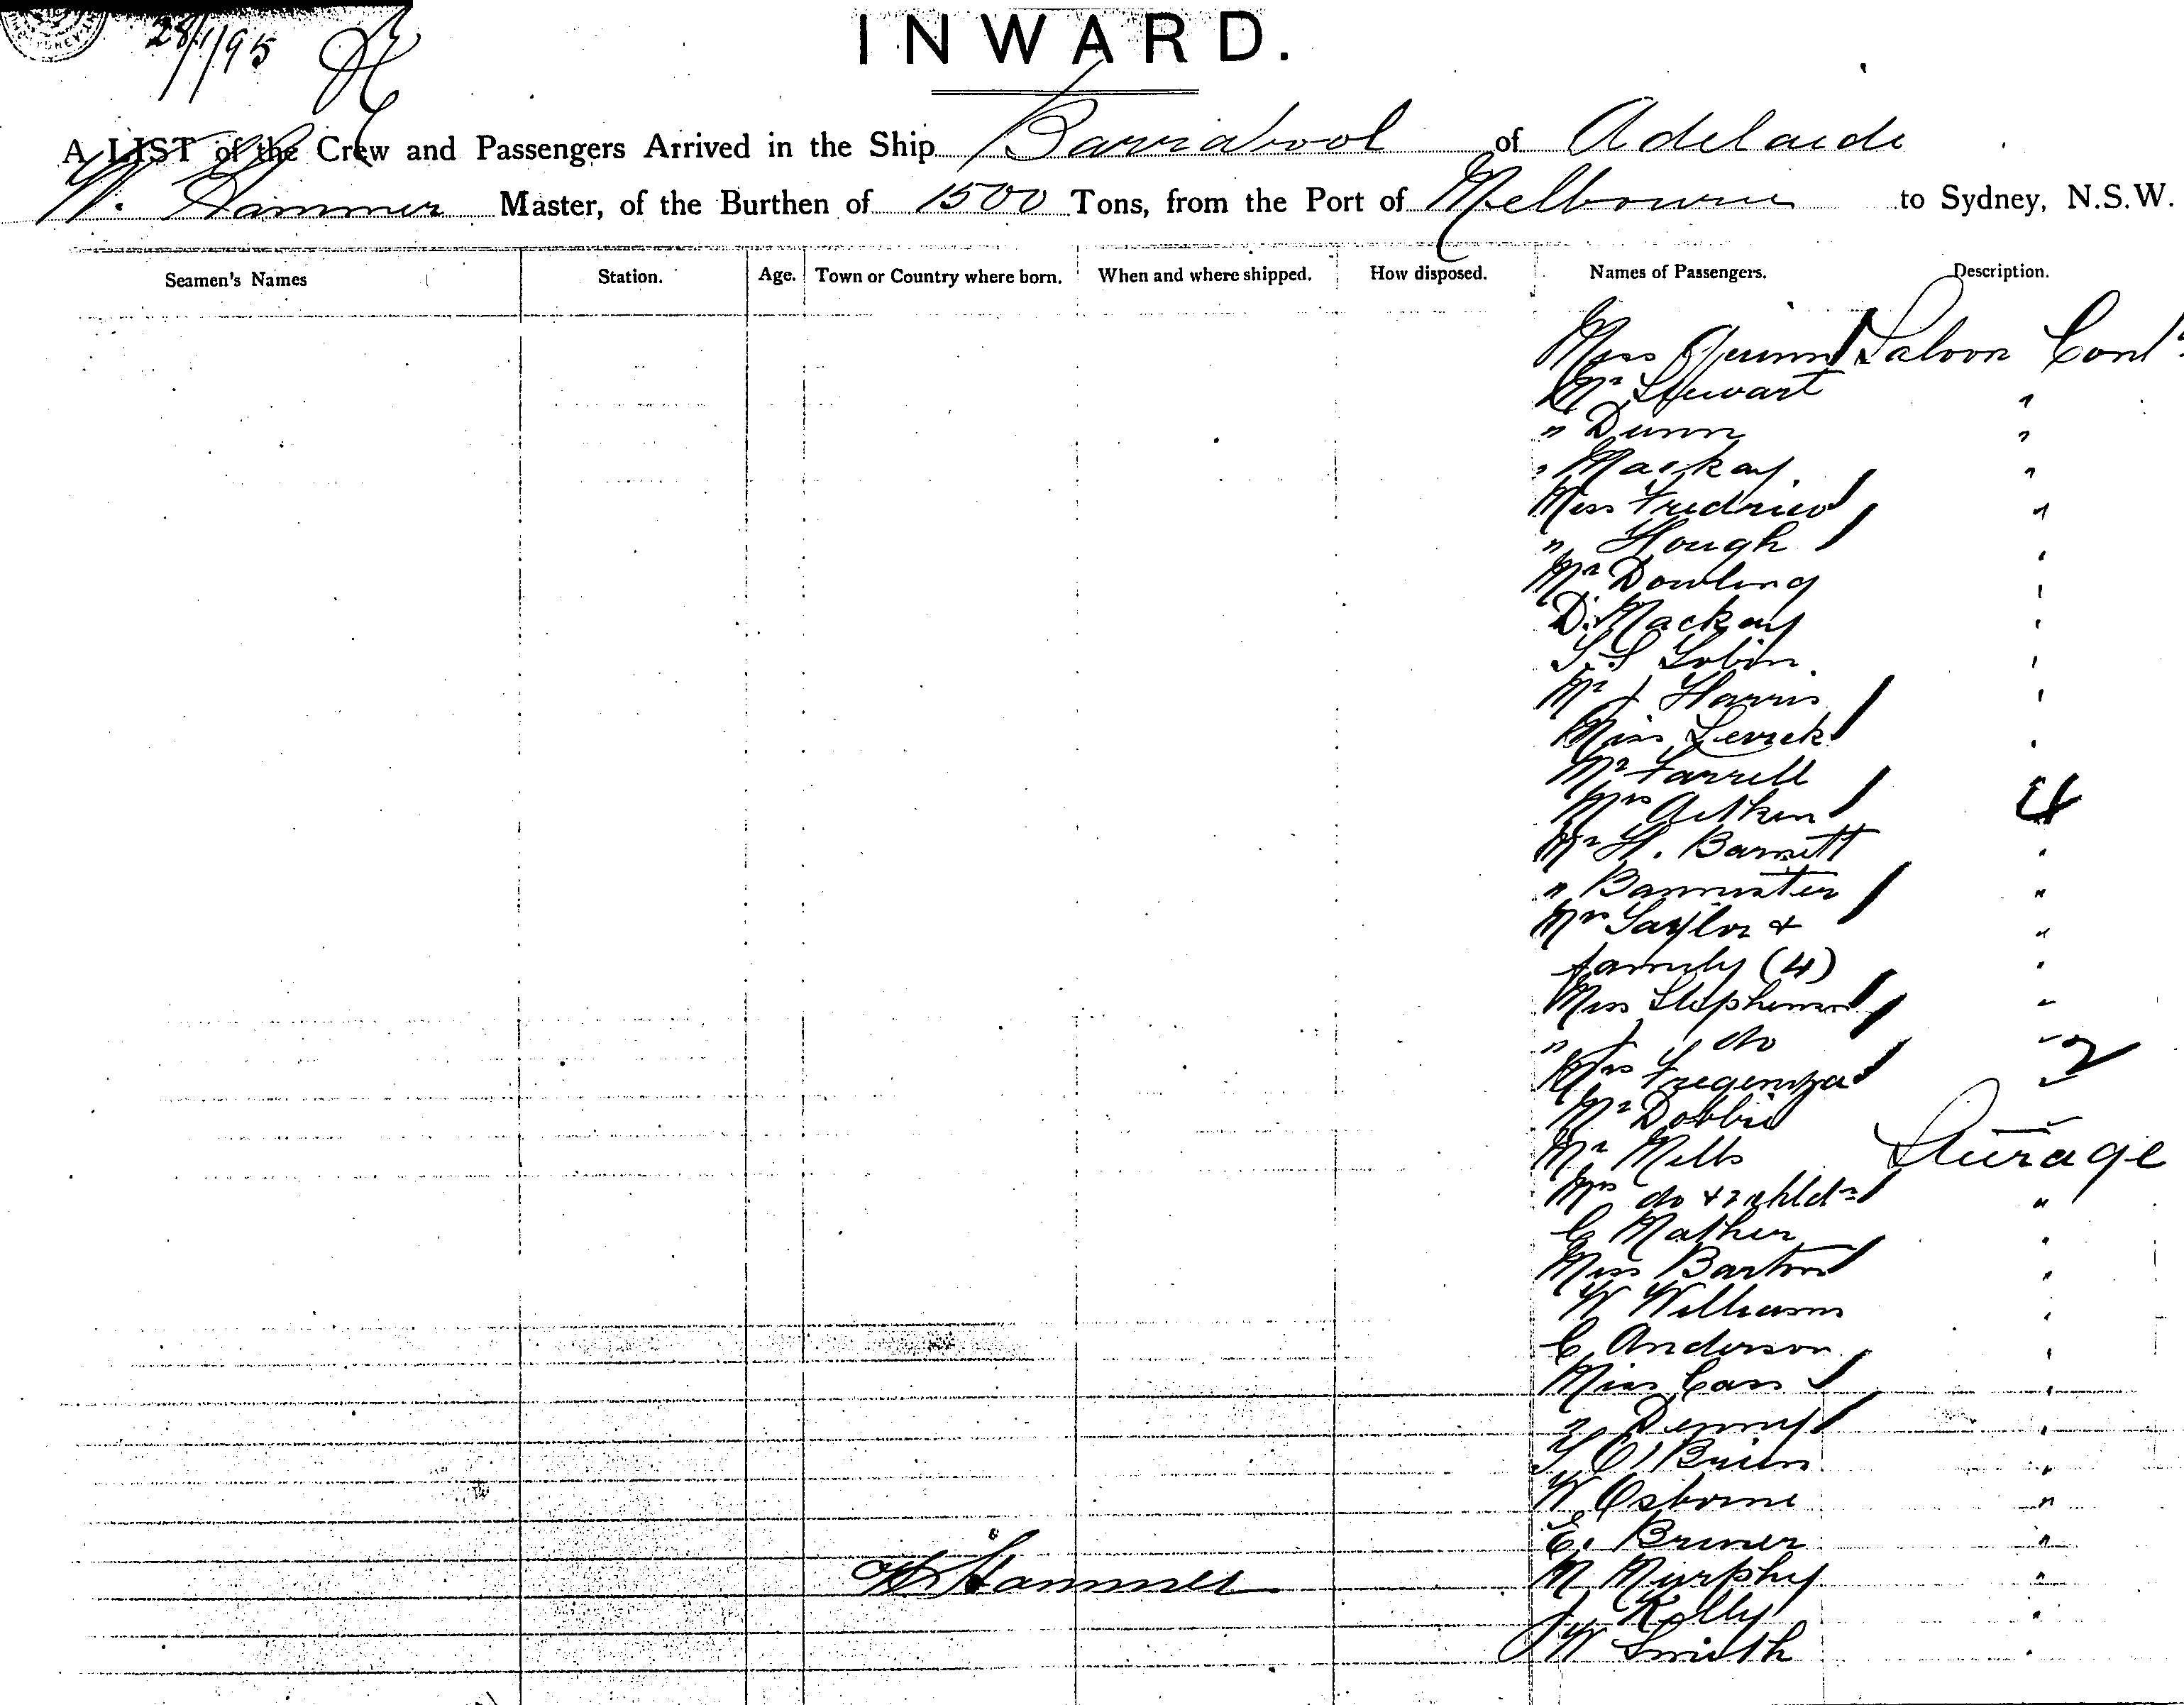 28/1/95
INWARD.
A LIST of the Crew and Passengers Arrived in the Ship Barrabool of Adelaide
W. Hammer Master, of the Burthen of 1500 Tons, from the Port of Melbourne to Sydney, N.S.W.
Seamen's Names Station. Age. Town or Country where born. When and where shipped. How disposed. Names of Passengers. Description.
Miss Saloon Cont
Mr Stewart "
" Dunn "
" Mackay "
Miss "
" Hough "
Mr Dowling "
D. Mackay "
"
Mr J Harris "
Miss "
Mr Farrell
Mrs Aitken 4
Mr H. Barnett "
" Bannister "
Mrs Taylor + "
family (4) "
Miss Stephenson "
" J do " 2
Mrs Tregenza "
Mr Dobbie
Mr Mills Steerage
Mrs do + 2 chldn "
C Mather "
Miss Barton "
W Williams "
C Anderson "
Miss Cass "
" Denny "
T O'Brien "
W Osborne "
E. Bruner "
W Hammer M Murphy "
J Kelly "
W Smith "